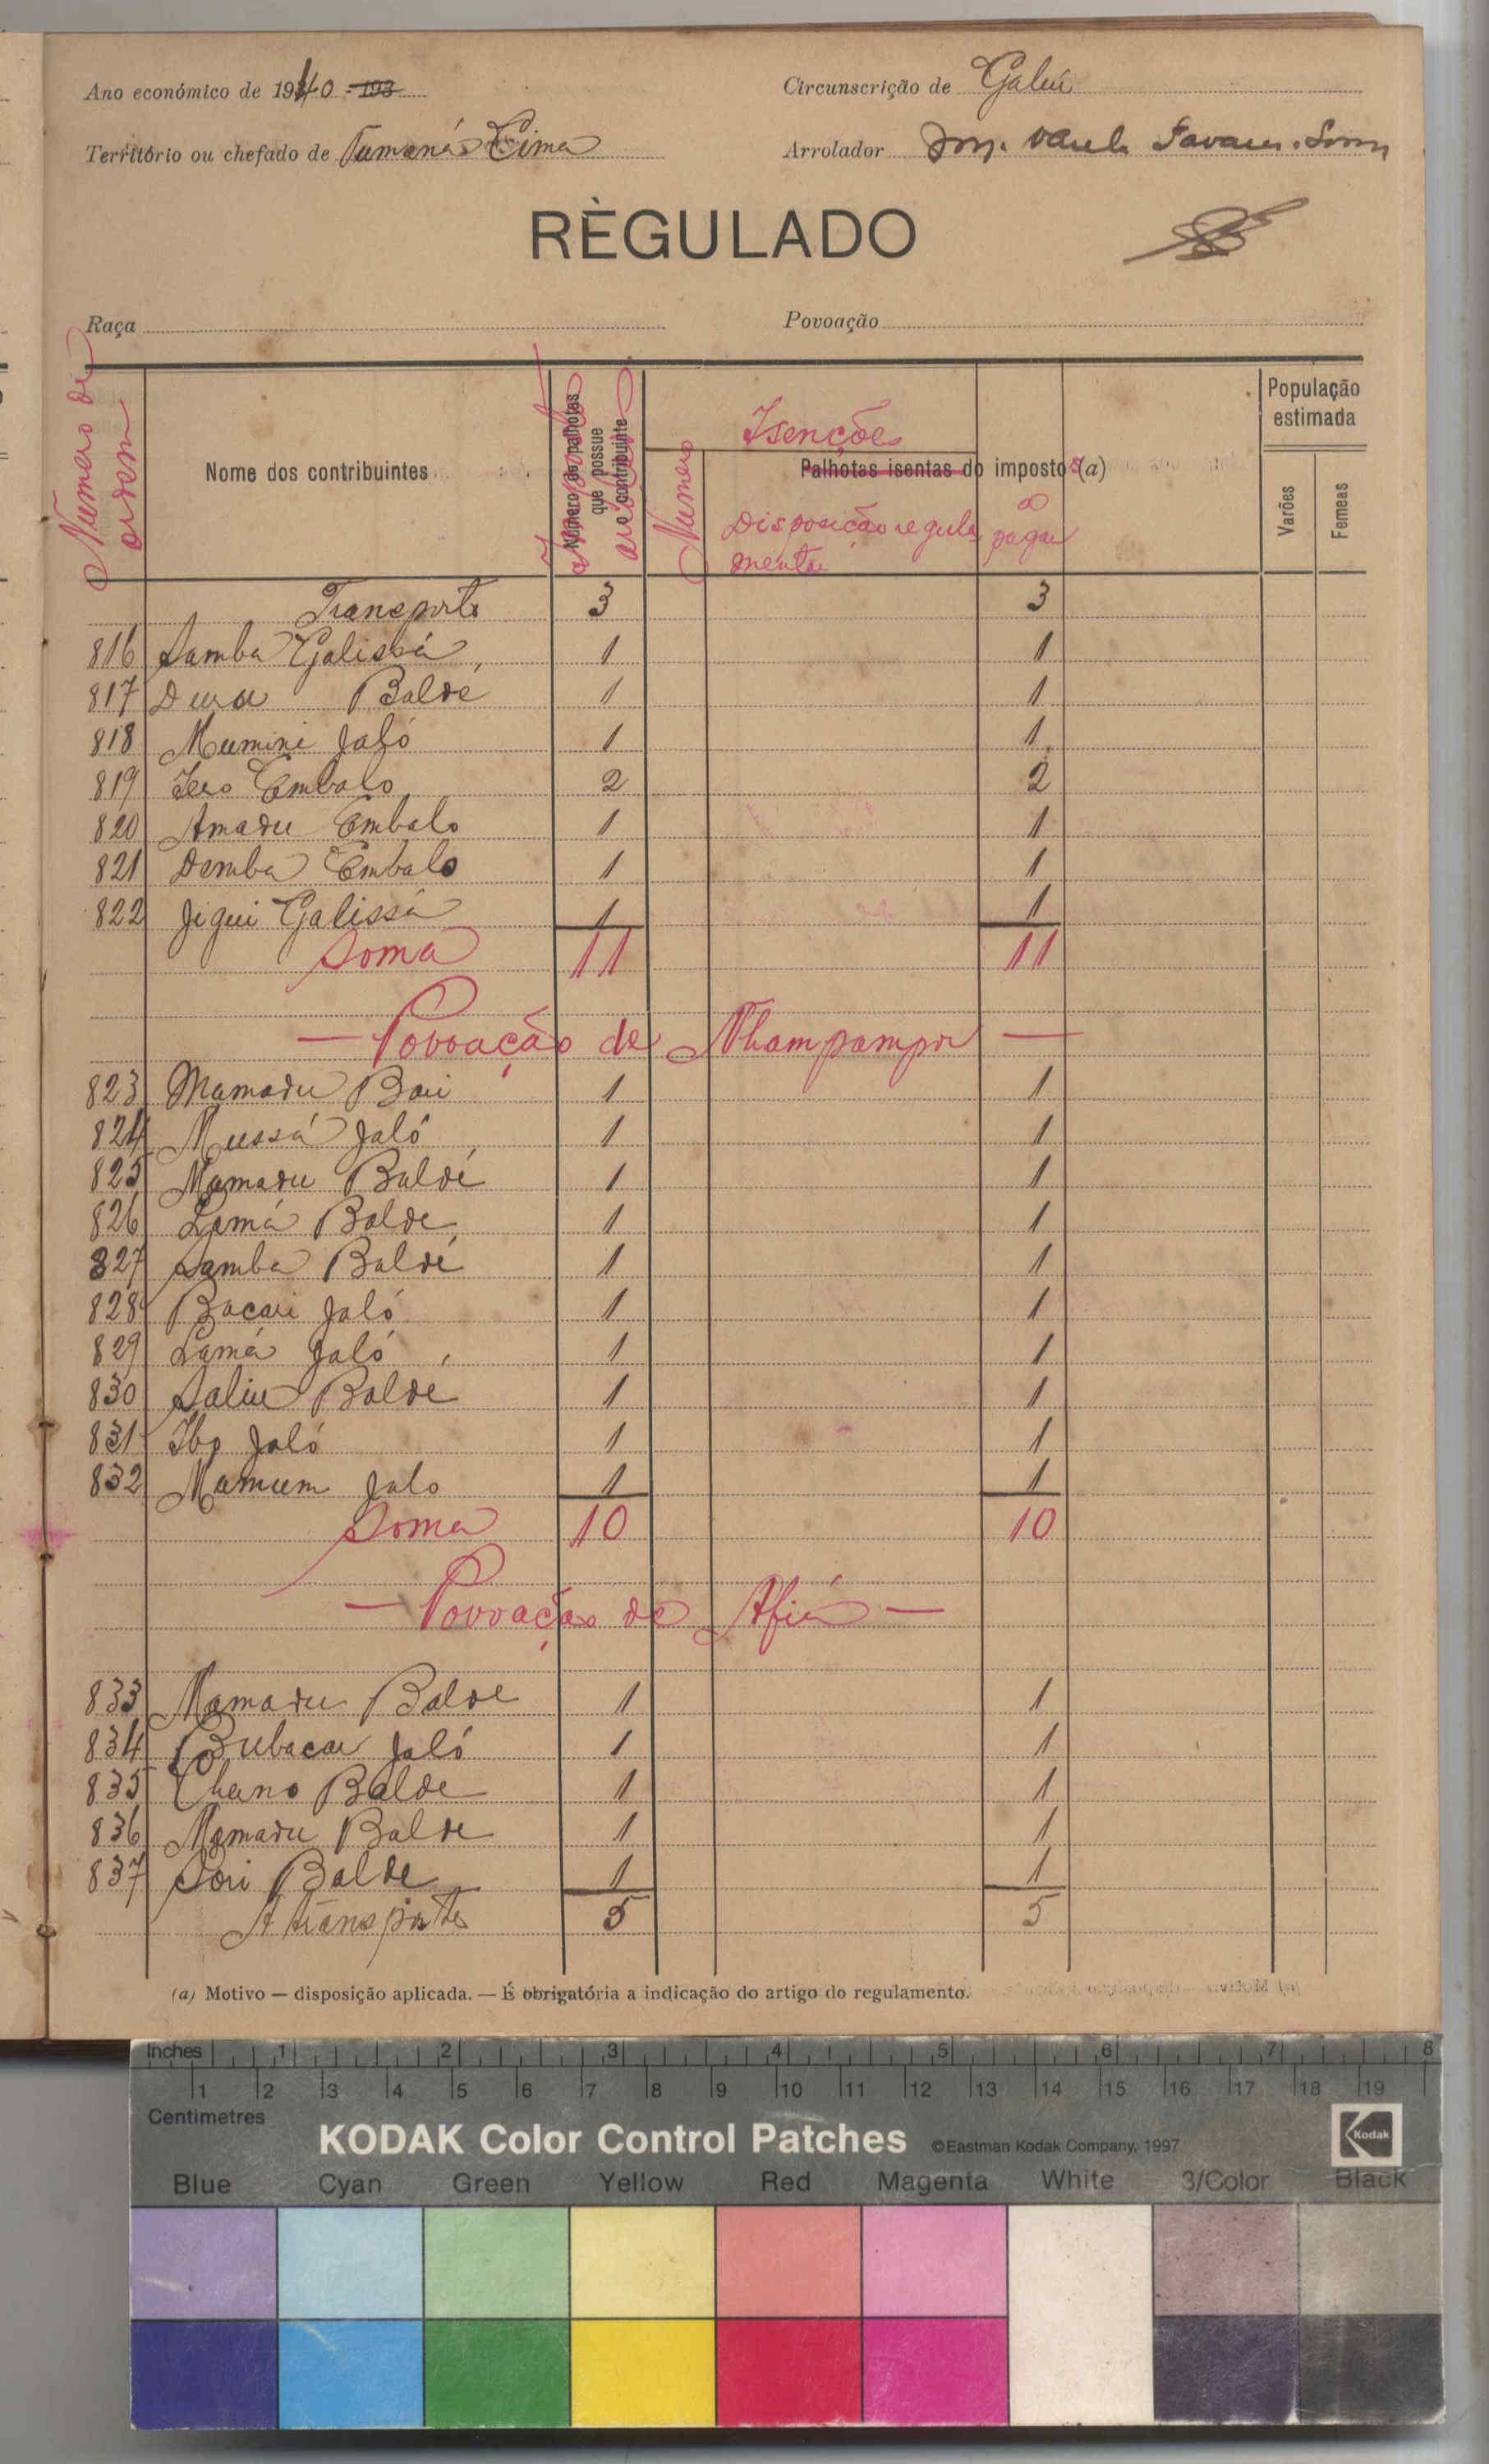 Ano económico de 1940 - 193
Circunscrição de Gabú
Território ou chefado de Tumaná Cima
Arrolador
RÈGULADO
Raça
Povoação
Numero de ordem
Nome dos contribuintes
Número de palhotas que possue o contribuinte
Isenções
Numero
Palhotas isentas do imposto (a)
Disposição regula
mentar
a pagar
População estimada
Varões
Femeas
Transporte 3 3
816 Samba Galissá 1 1
817 Balde 1 1
818 Mumine Jaló 1 1
819 Embalo 2 2
820 Amadu Embalo 1 1
821 Demba Embalo 1 1
822 Jigui Galissá 1 1
Soma 11 11
— Povoação de Nhampampor —
823 Mamadu Bari 1 1
824 Mussá Jaló 1 1
825 Mamadu Baldé 1 1
826 Lamá Balde 1 1
827 Samba Baldé 1 1
828 Bacari Jaló 1 1
829 Lamá Jaló 1 1
830 Saliu Balde 1 1
831 Ibo Jaló 1 1
832 Mamum Jalo 1 1
Soma 10 10
— Povoação de Afiá —
833 Mamadu Balde 1 1
834 Bubacar Jaló 1 1
835 Cherno Balde 1 1
836 Mamadu Balde 1 1
837 Sori Balde 1 1
A transportar 5 5
(a) Motivo — disposição aplicada. — É obrigatória a indicação do artigo do regulamento.
Inches 1 2 3 4 5 6 7 8
1 2 3 4 5 6 7 8 9 10 11 12 13 14 15 16 17 18 19
Centimetres
KODAK Color Control Patches ©Eastman Kodak Company, 1997 Kodak
Blue Cyan Green Yellow Red Magenta White 3/Color Black